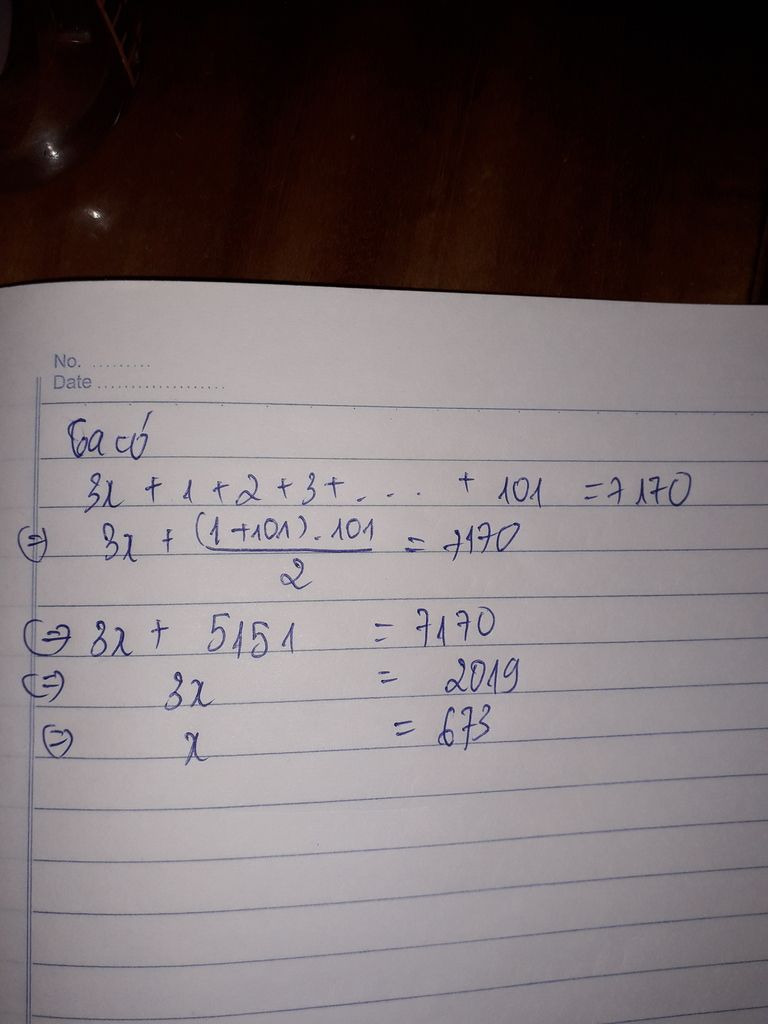 No. .........
Date ...................
Ta có
3x + 1 + 2 + 3 + .... + 101 = 7170
⇔ 3x + (1 + 101) . 101 / 2 = 7170
⇔ 3x + 5151 = 7170
⇔ 3x = 2019
⇔ x = 673